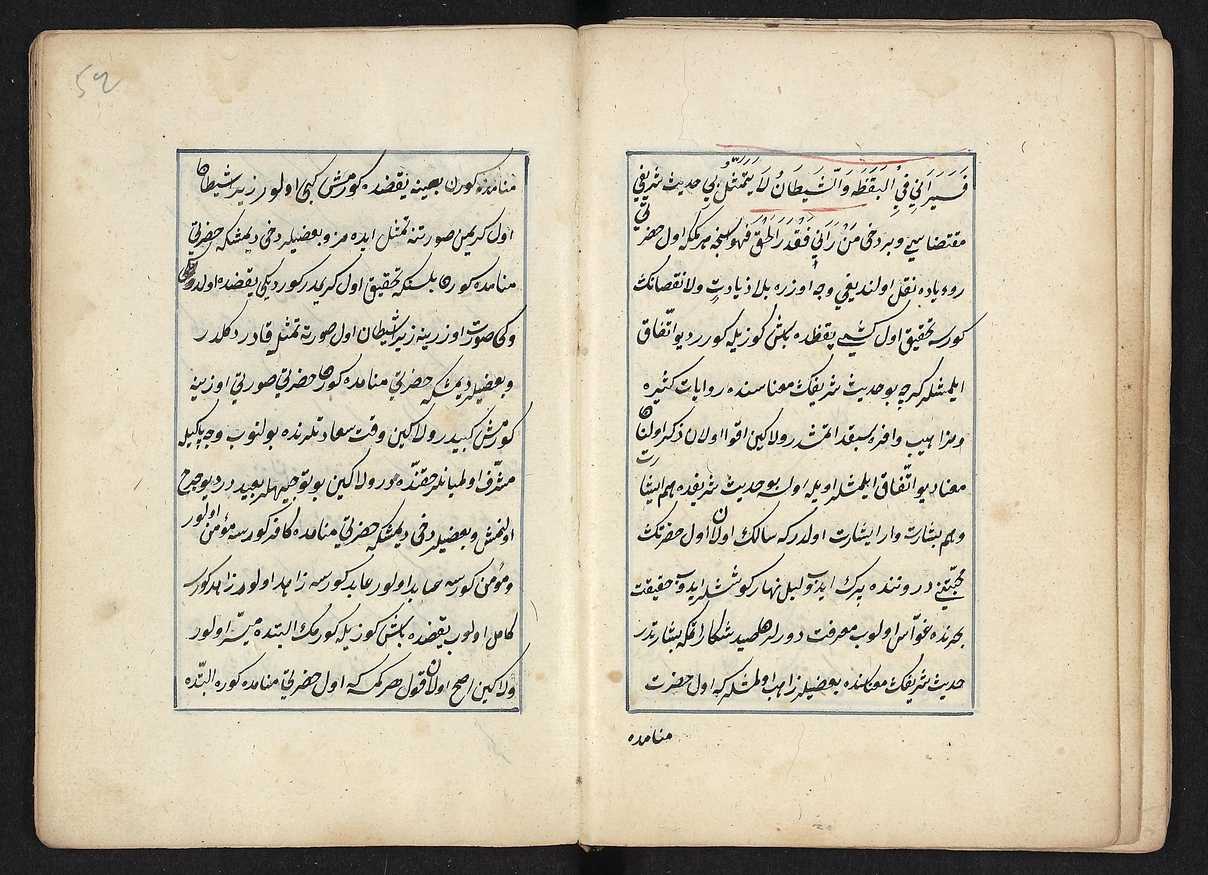 فَسَيَرَانِي فِي الْيَقَظَةِ وَالشَّيْطَانُ لَا يَتَمَثَّلُ بِي حديث شريفي
مقتضاسي وبردخي مَنْ رَآنِي فَقَدْ رَأَى الْحَقَّ فهو سنجه هر كمكه اول حضرتي
رؤياده نقل اولنديغي وجه اوزره بلا زيادت ولا نقصانك
كورسه تحقيق اول كيمسه يقظه ده باش كوزيله كورر ديو اتّفاق
ايلمشلر كرچه بو حديث شريفك معناسنده روايات كثيره
ومذاهيب وافره سبقد ايتمشدر ولاكين اقوا اولان ذكر اولنان
معنا ديو اتّفاق ايلمشلر اويله اولسه بو حديث شريفده هم اشارت
وهم بشارت وار اشارت اولدر كه سالك اولان اول حضرتك
محبّتيني دروننده برك ايدوب ليل نهار كوششلر ايدوب حقيقت
بحرنده غوّاص اولوب معرفت دورلرله صيد شكار ايتمكه بشارتدر
حديث شريفك معناسنده بعضيلر ذاهب اولمشلر كه اول حضرت
منامده
52
منامده كورن بعينه يقضده كورمش كبي اولور زيرا شيطان
اول كريمين صورتنه تمثل ايده مز وبعضيلر دخي ديمشلر كه حضرتي
منامده كورن بلسنكه تحقيق اول كريمدر كورديكي يقضده اولدوغي
وكي صورت اوزرينه زيرا شيطان اول صورته تمثل قادر دكلدر
وبعضيلر ديمشلر كه حضرتي منامده كورن حضرتي صورتي اوزرينه
كورمش كبيدر ولاكين وقت سعادتلرنده بولنوب وجه پاكيله
مشرّف اولميانلر حقنده در ولاكين بو توجيهلر بعيددر ديو جرح
اولنمش وبعضيلر دخي ديمشلر كه حضرتي منامده كافر كورسه مؤمن اولور
ومؤمن كورسه عابد اولور عابد كورسه زاهد اولور زاهد كورسه
كامل اولوب يقضده باش كوزيله كورمك البتده ميسّر اولور
ولاكين اصح اولان قول هر كمسه كه اول حضرتي منامده كوره البتّده